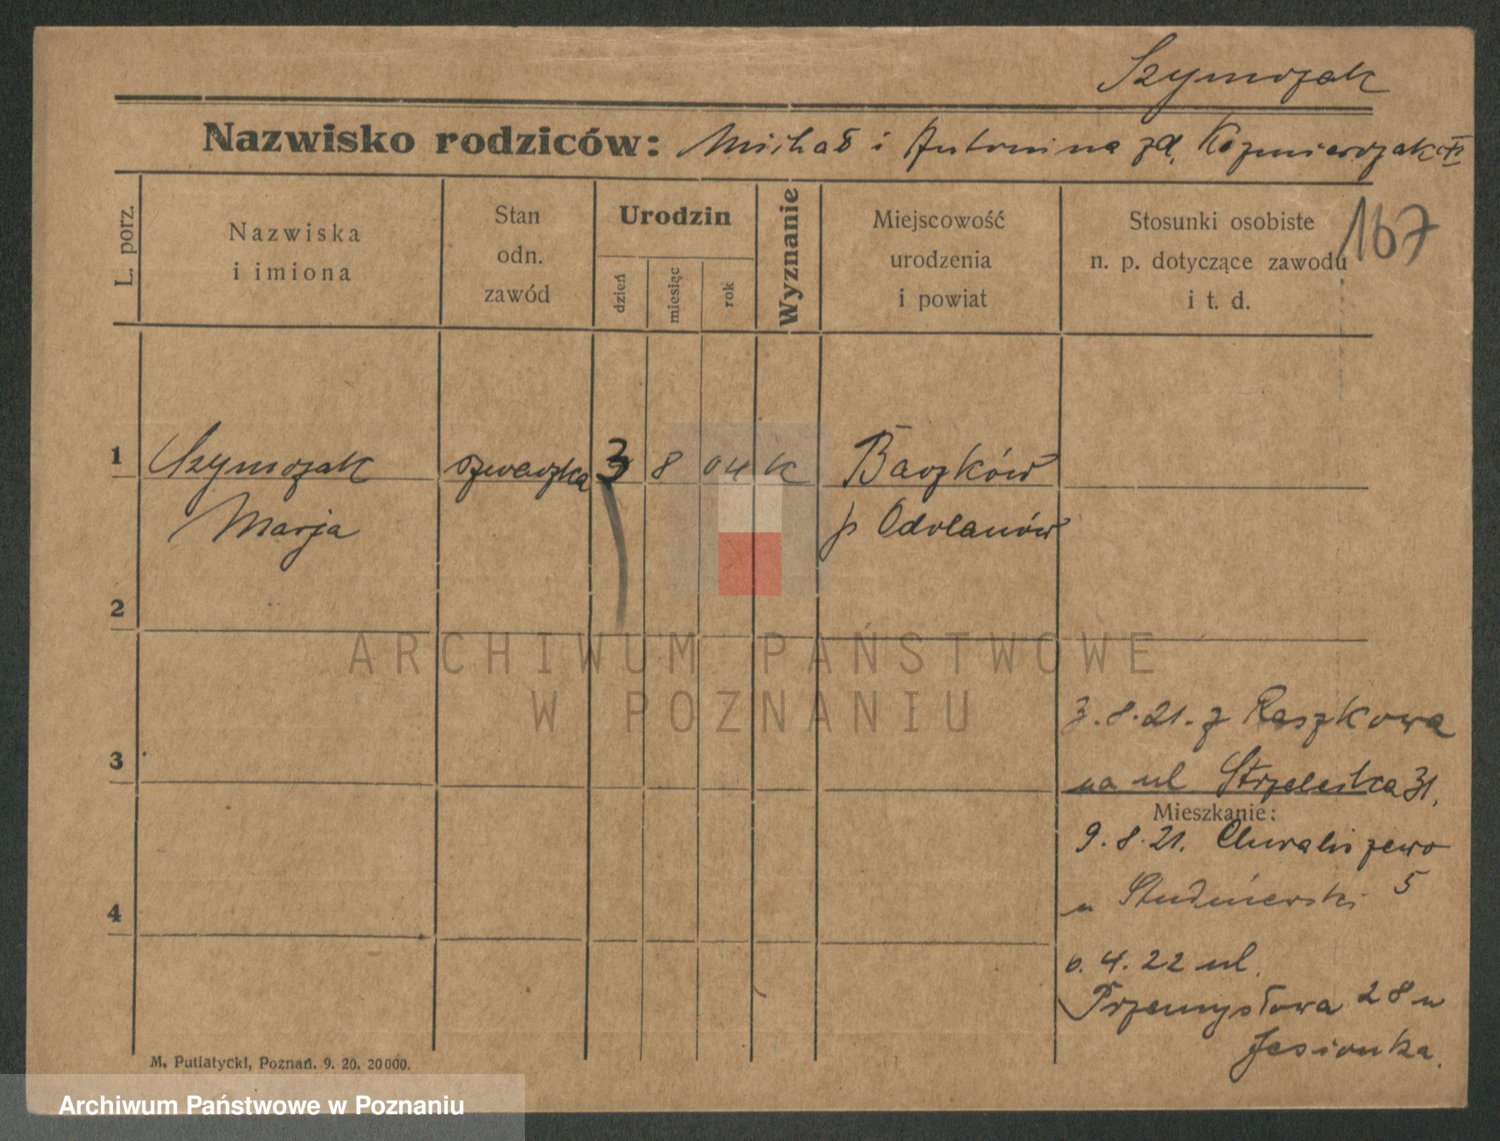 Szymczak
Nazwisko rodziców: Michał i Antonina zd. Kaźmierczak
L. porz.
Nazwiska
i imiona
Stan
odn.
zawód
Urodzin
dzień
miesiąc
rok
Wyznanie
Miejscowość
urodzenia
i powiat
Stosunki osobiste
n. p. dotyczące zawodu
i t. d.
167
1 Szymczak szwaczka 3 8 04 k Baszków
Marja p Odolanów
2
3
4
3.8.21. z Raszkowa
na ul Strzelecka 31,
Mieszkanie:
9.8.21. Chwaliszewo
u Studniewski 5
6.4.22 ul.
Przemysłowa 28 u
Jesionka.
M. Putiatycki, Poznań. 9. 20. 20000.
ARCHIWUM PAŃSTWOWE
W POZNANIU
Archiwum Państwowe w Poznaniu